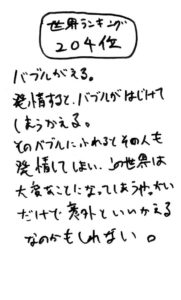 世界ランキング
204位
バブルがえる。
発情すると、バブルがはじけて
しまうかえる。
そのバブルにふれるとその人も
発情してしまい、この世界は
大変なことになってしまうやっかい
だけで意外といいかえる
なのかもしれない。